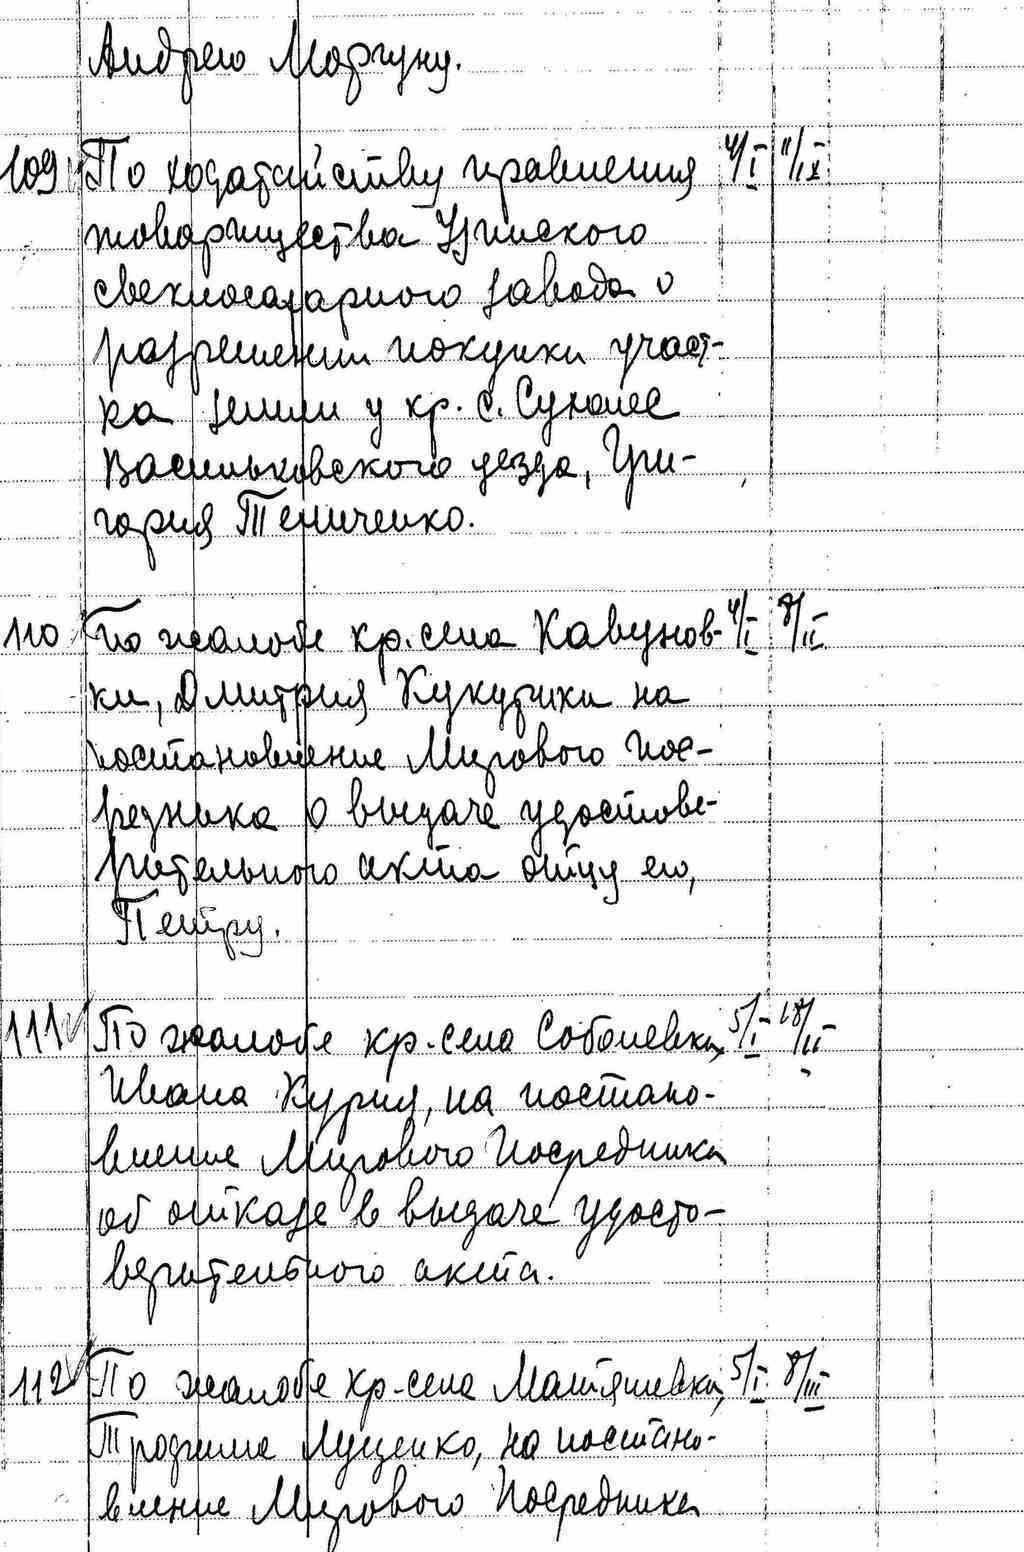 Андрею Моргуну.
109 По ходатайству правления 4/I 11/IX
товарищества Узинского
свеклосахарного завода о
разрешении покупки участ-
ка земли у кр. с. Сухолес
Васильковского уезда, Гри-
гория Тениченко.
110 По жалобе кр. села Кавунов- 4/I 8/II
ки, Дмитрия на
постановление Мирового Пос-
редника о выдаче удостове-
рительного акта отцу его,
Петру.
111 По жалобе кр. села Соболевки, 5/I 18/II
Ивана Курия, на постано-
вление Мирового Посредника
об отказе в выдаче удосто-
верительного акта.
112 По жалобе кр. села Матяшевки, 5/I 8/III
Трофима Луценко, на постано-
вление Мирового Посредника